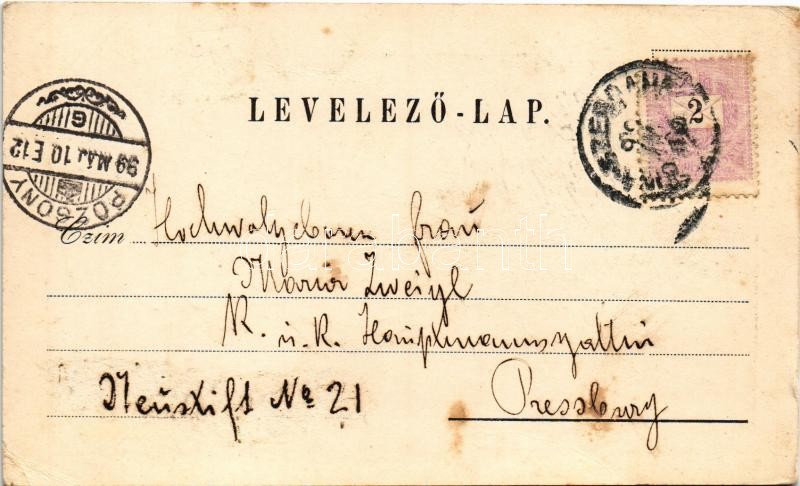 LEVELEZŐ-LAP.
2
POZSONY
99 MÁJ. 10. E 12
G
Czim Hochwolgeboren Frau
Maria Zweigl
K. u. K. Hauptmannsgattin
Neustift № 21
Pressburg